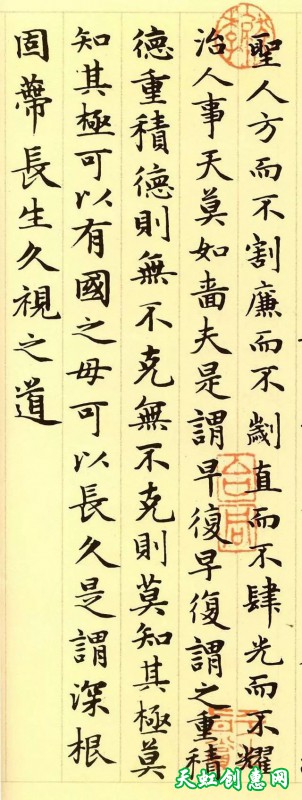 聖人方而不割廉而不劌直而不肆光而不耀
治人事天莫如嗇夫是謂早復早復謂之重積
德重積德則無不克無不克則莫知其極莫
知其極可以有國之母可以長久是謂深根
固蔕長生久視之道
天虹创惠网